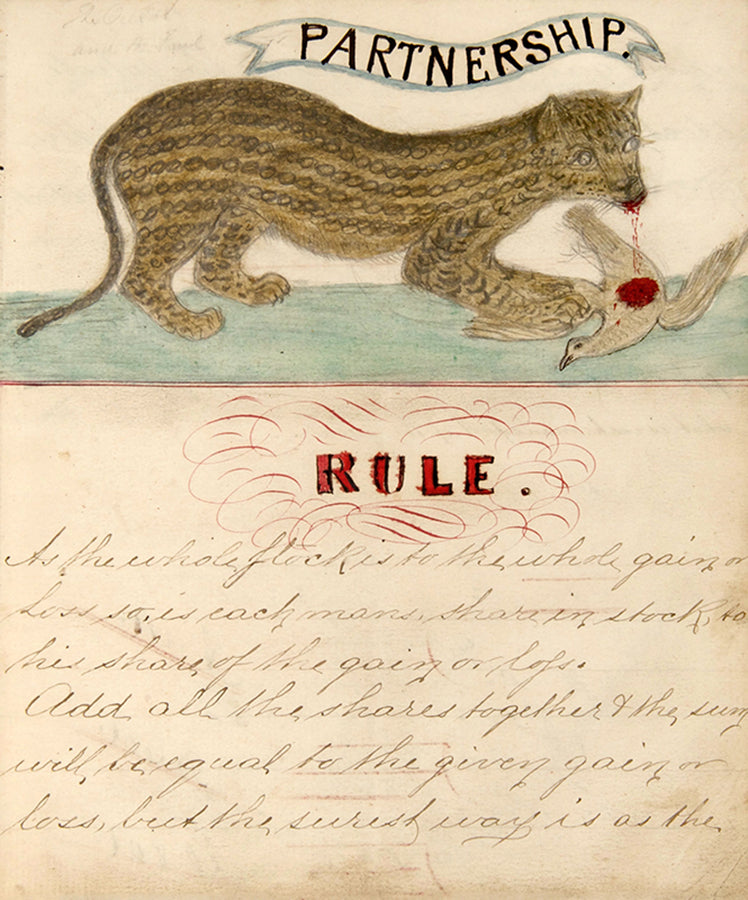 The Ocelot
and the Fowl
PARTNERSHIP.
RULE.
As the whole stock is to the whole gain or
Loss so, is each mans, share in stock, to
his share of the gain or loſs.
Add all the shares together & the sum
will be equal to the given gain or
loss, but the surest way is as the